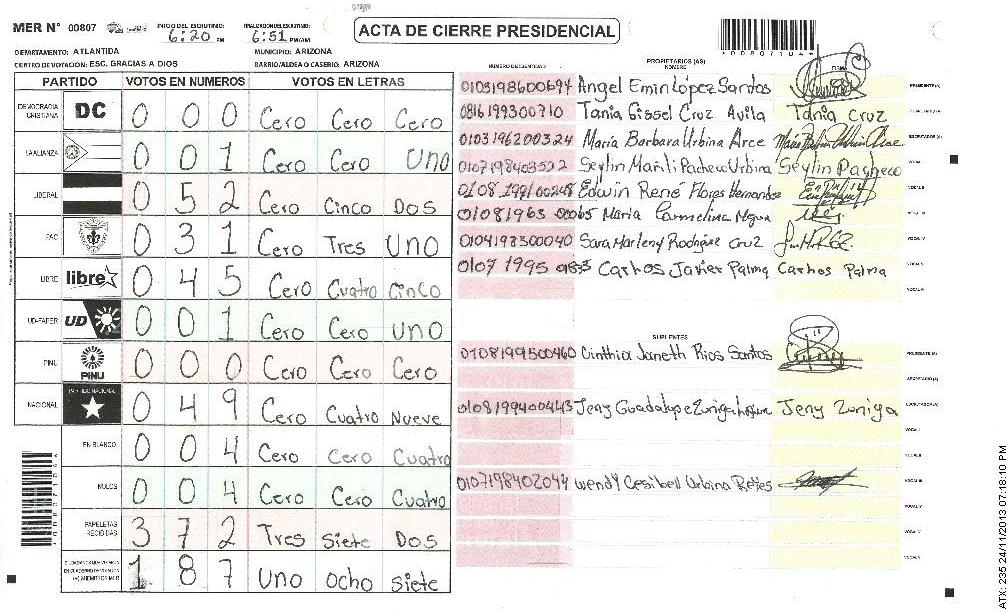 MER N° 00807 INICIO DEL ESCRUTINIO: 6:20 PM FINALIZACION DEL ESCRUTINIO: 6:51 PM/AM
ACTA DE CIERRE PRESIDENCIAL
DEPARTAMENTO: ATLANTIDA MUNICIPIO: ARIZONA
CENTRO DE VOTACION: ESC. GRACIAS A DIOS BARRIO/ALDEA O CASERIO: ARIZONA
PARTIDO VOTOS EN NUMEROS VOTOS EN LETRAS
DEMOCRACIA CRISTIANA DC 0 0 0 Cero Cero Cero
LA ALIANZA 0 0 1 Cero Cero Uno
LIBERAL 0 5 2 Cero Cinco Dos
PAC 0 3 1 Cero Tres Uno
LIBRE libre 0 4 5 Cero Cuatro Cinco
UD-FAPER UD 0 0 1 Cero Cero Uno
PINU PINU 0 0 0 Cero Cero Cero
NACIONAL PARTIDO NACIONAL 0 4 9 Cero Cuatro Nueve
EN BLANCO 0 0 4 Cero Cero Cuatro
NULOS 0 0 4 Cero Cero Cuatro
PAPELETAS RECIBIDAS 3 7 2 Tres Siete Dos
CIUDADANOS QUE VOTARON EN CUADERNO DE VOTACION (+) MIEMBROS MER 1 8 7 Uno Ocho Siete
NUMERO DE IDENTIDAD PROPIETARIOS (AS) NOMBRE FIRMA
0103198600694 Angel Emin López Santos PRESIDENTE(A)
0816199300710 Tania Gissel Cruz Avila Tania Cruz
0103196200324 María Barbara Urbina Arce ESCRUTADOR(A)
0107198403522 Seylin Marili Pacheco Urbina Seylin Pacheco VOCAL I
0108199100248 Edwin René Flores Hernandez VOCAL II
01081963 00065 Maria Carmelina VOCAL III
0104198300040 Sara Marleny Rodriguez Cruz VOCAL IV
0107 1995 Carlos Javier Palma Carlos Palma VOCAL V
VOCAL VI
SUPLENTES
0108199500460 Cinthia Janeth Rios Santos PRESIDENTE (A)
SECRETARIO (A)
0108199400443 Jeny Guadalupe Zuniga Jeny Zuniga ESCRUTADOR(A)
VOCAL I
VOCAL II
0107198402044 Wendy Cesibell Urbina Reyes VOCAL III
VOCAL IV
VOCAL V
VOCAL VI
ATX: 235 24/11/2013 07:18:10 PM